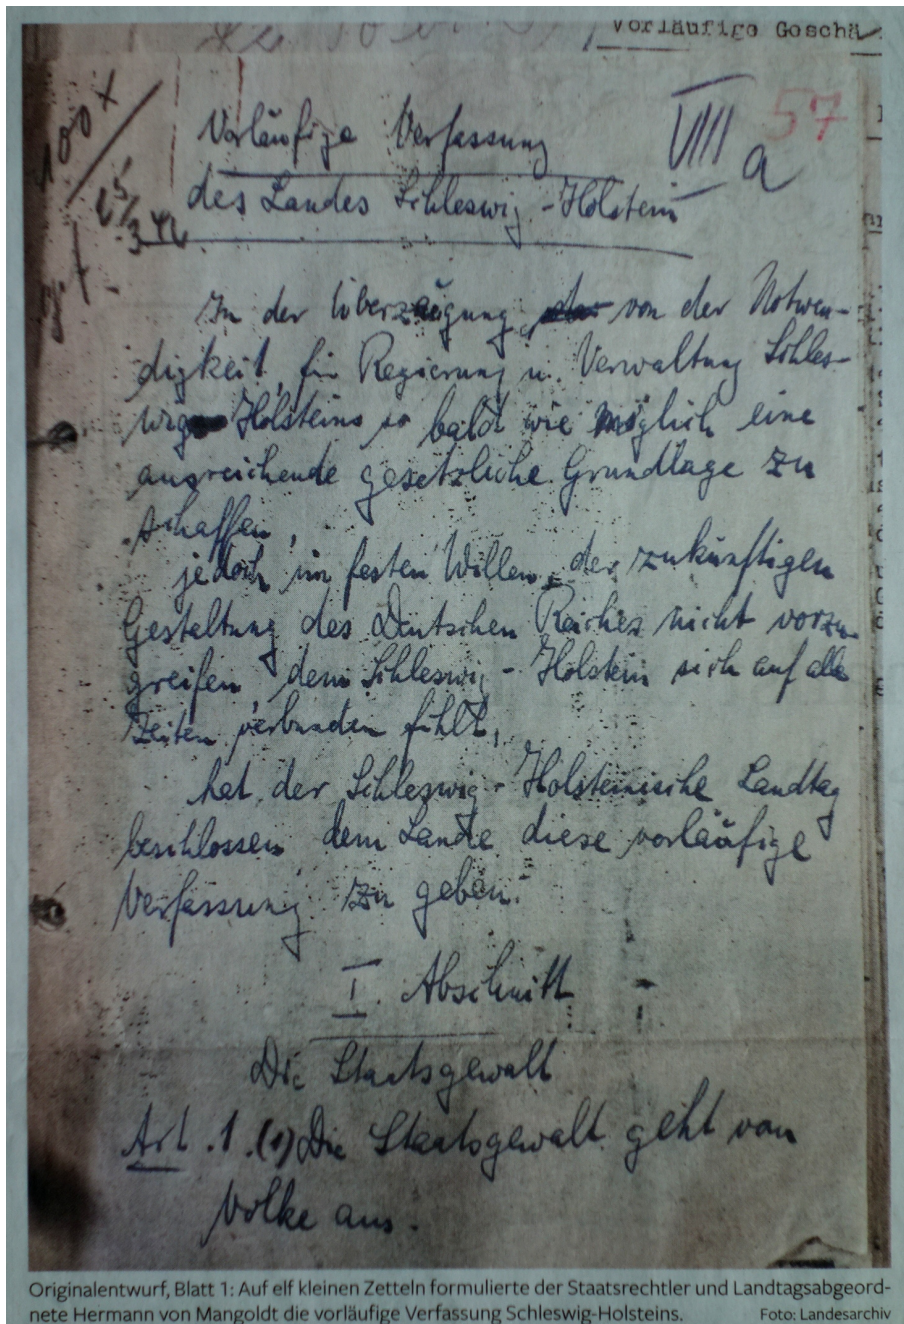 Vorläufige Geschä
100 x
VIIII a
57
Vorläufige Verfassung
des Landes Schleswig-Holstein
In der Überzeugung, von der Notwen-
digkeit, für Regierung u. Verwaltung Schles-
wig Holsteins so bald wie möglich eine
ausreichende gesetzliche Grundlage zu
schaffen,
jedoch im festen Willen, der zukünftigen
Gestaltung des Deutschen Reiches nicht vorzu-
greifen, dem Schleswig-Holstein sich auf alle
Zeiten verbunden fühlt,
hat der Schleswig-Holsteinische Landtag
beschlossen dem Lande diese vorläufige
Verfassung zu geben:
I. Abschnitt
Die Staatsgewalt
Art. 1. (1) Die Staatsgewalt geht vom
Volke aus.
Originalentwurf, Blatt 1: Auf elf kleinen Zetteln formulierte der Staatsrechtler und Landtagsabgeord-
nete Hermann von Mangoldt die vorläufige Verfassung Schleswig-Holsteins. Foto: Landesarchiv